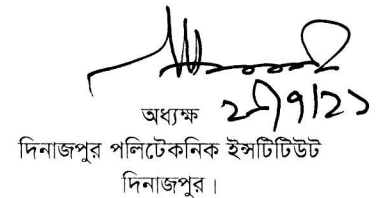 অধ্যক্ষ
দিনাজপুর পলিটেকনিক ইন্সটিটিউট
দিনাজপুর।